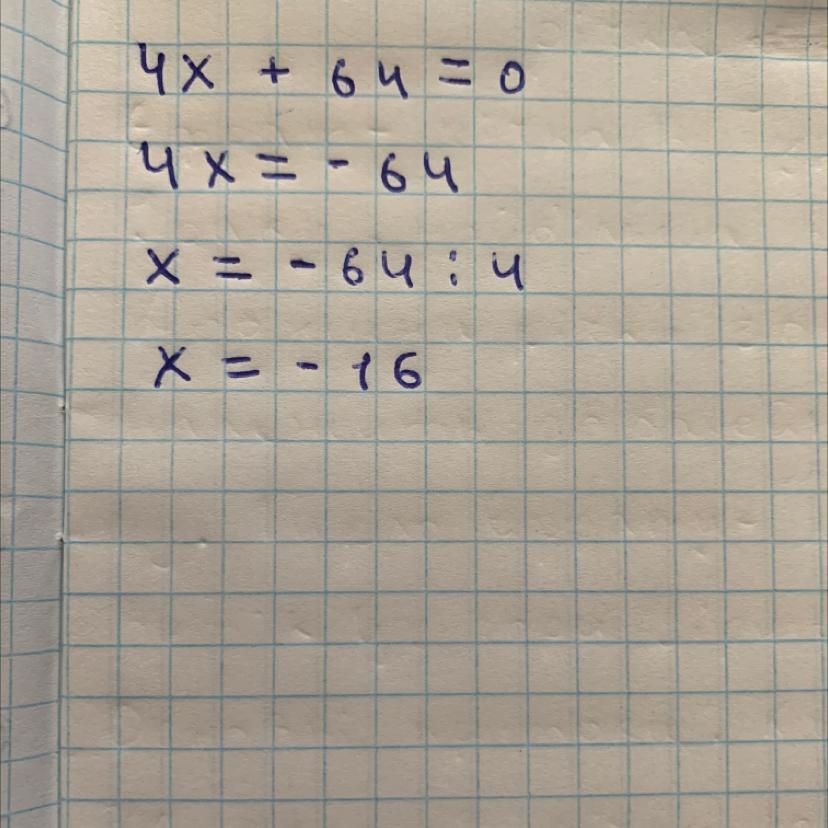 4x + 64 = 0
4x = - 64
x = - 64 : 4
x = - 16